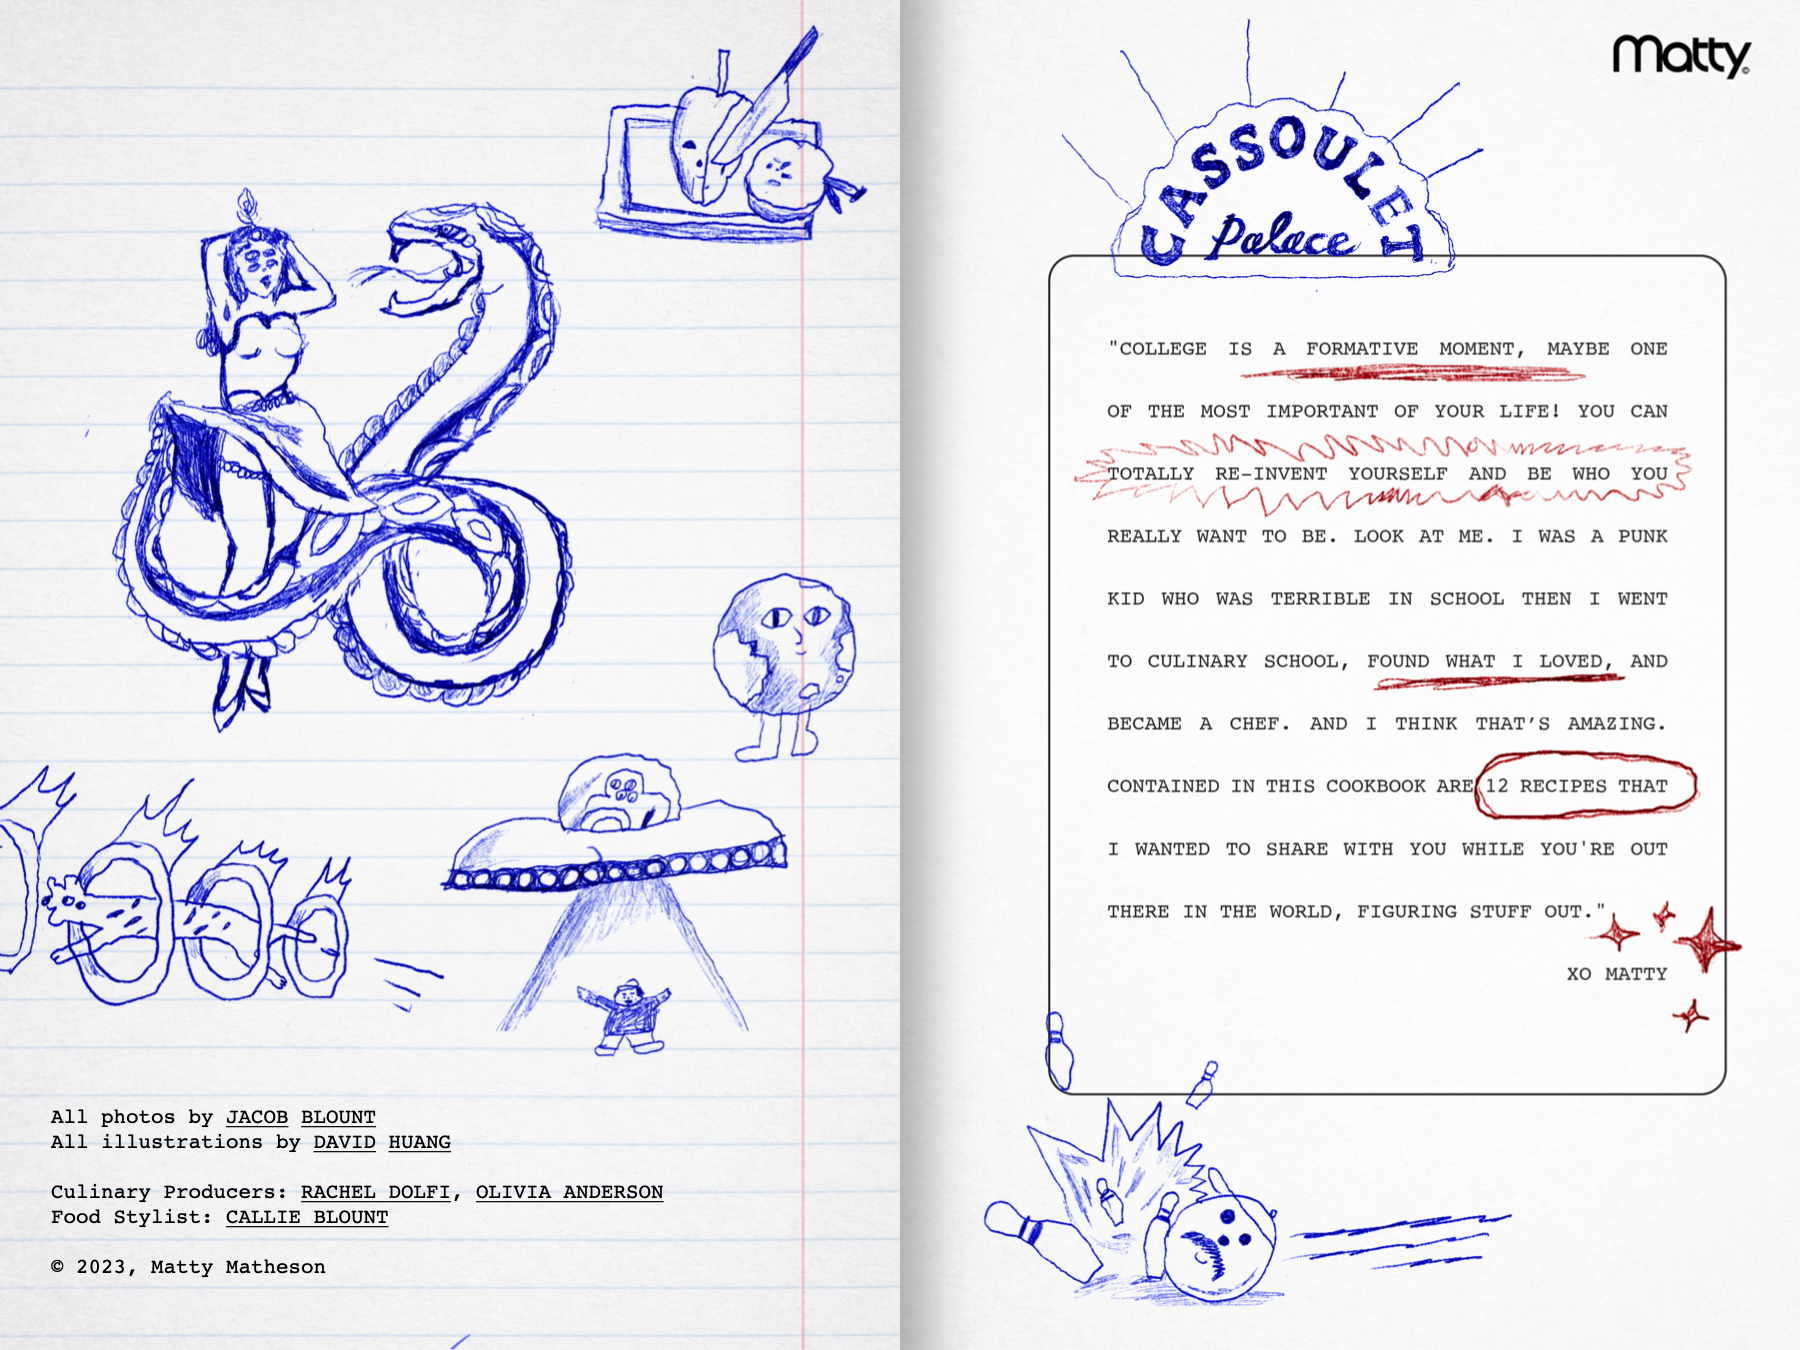 All photos by JACOB BLOUNT
All illustrations by DAVID HUANG
Culinary Producers: RACHEL DOLFI, OLIVIA ANDERSON
Food Stylist: CALLIE BLOUNT
© 2023, Matty Matheson
Matty©
CASSOULET
Palace
"COLLEGE IS A FORMATIVE MOMENT, MAYBE ONE
OF THE MOST IMPORTANT OF YOUR LIFE! YOU CAN
TOTALLY RE-INVENT YOURSELF AND BE WHO YOU
REALLY WANT TO BE. LOOK AT ME. I WAS A PUNK
KID WHO WAS TERRIBLE IN SCHOOL THEN I WENT
TO CULINARY SCHOOL, FOUND WHAT I LOVED, AND
BECAME A CHEF. AND I THINK THAT’S AMAZING.
CONTAINED IN THIS COOKBOOK ARE 12 RECIPES THAT
I WANTED TO SHARE WITH YOU WHILE YOU'RE OUT
THERE IN THE WORLD, FIGURING STUFF OUT."
XO MATTY